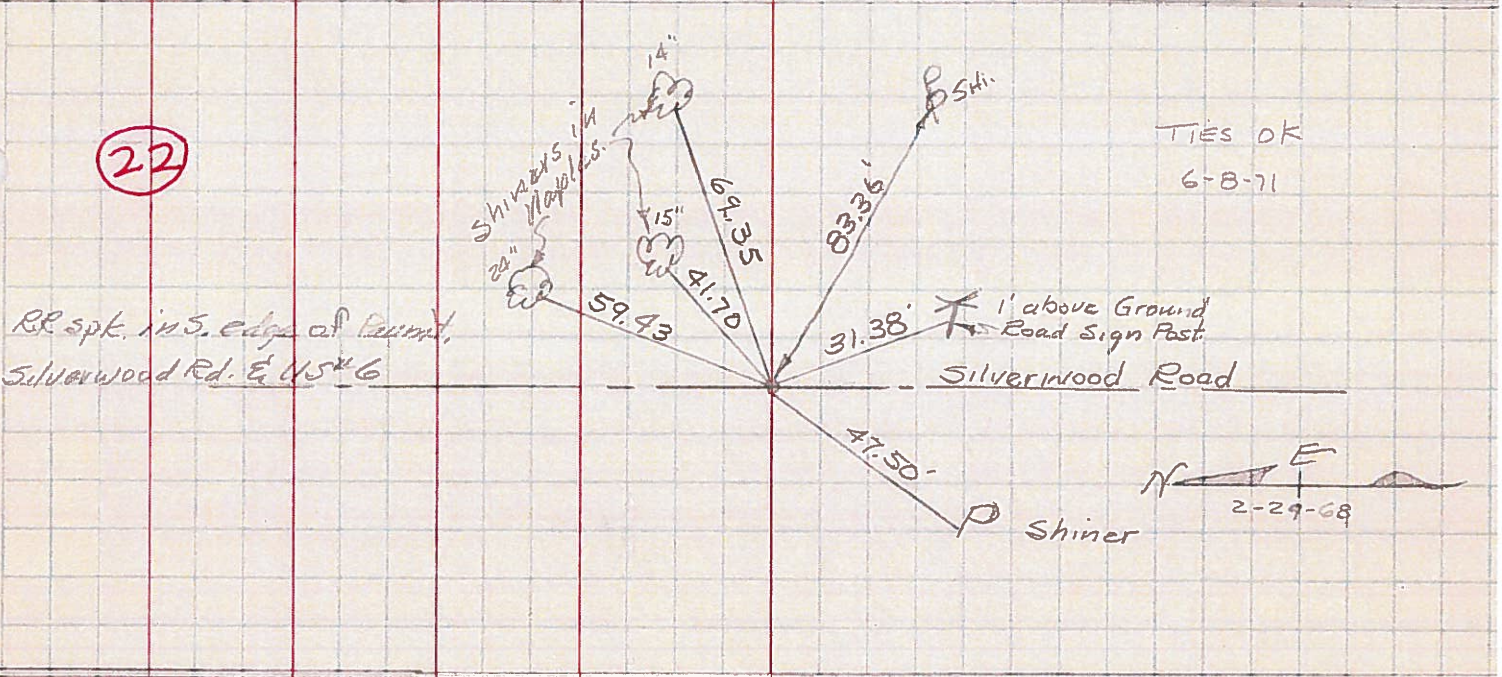 22
14"
SHi.
TiES OK
6-8-71
Shiners in
Maples.
15"
24"
69.35
83.36'
41.70
59.43
31.38'
1' above Ground
Road Sign Post.
RR spk. in S. edge of Pavmt.
Silverwood Rd. & US#6
Silverwood Road
47.50-
N E
2-29-68
P Shiner